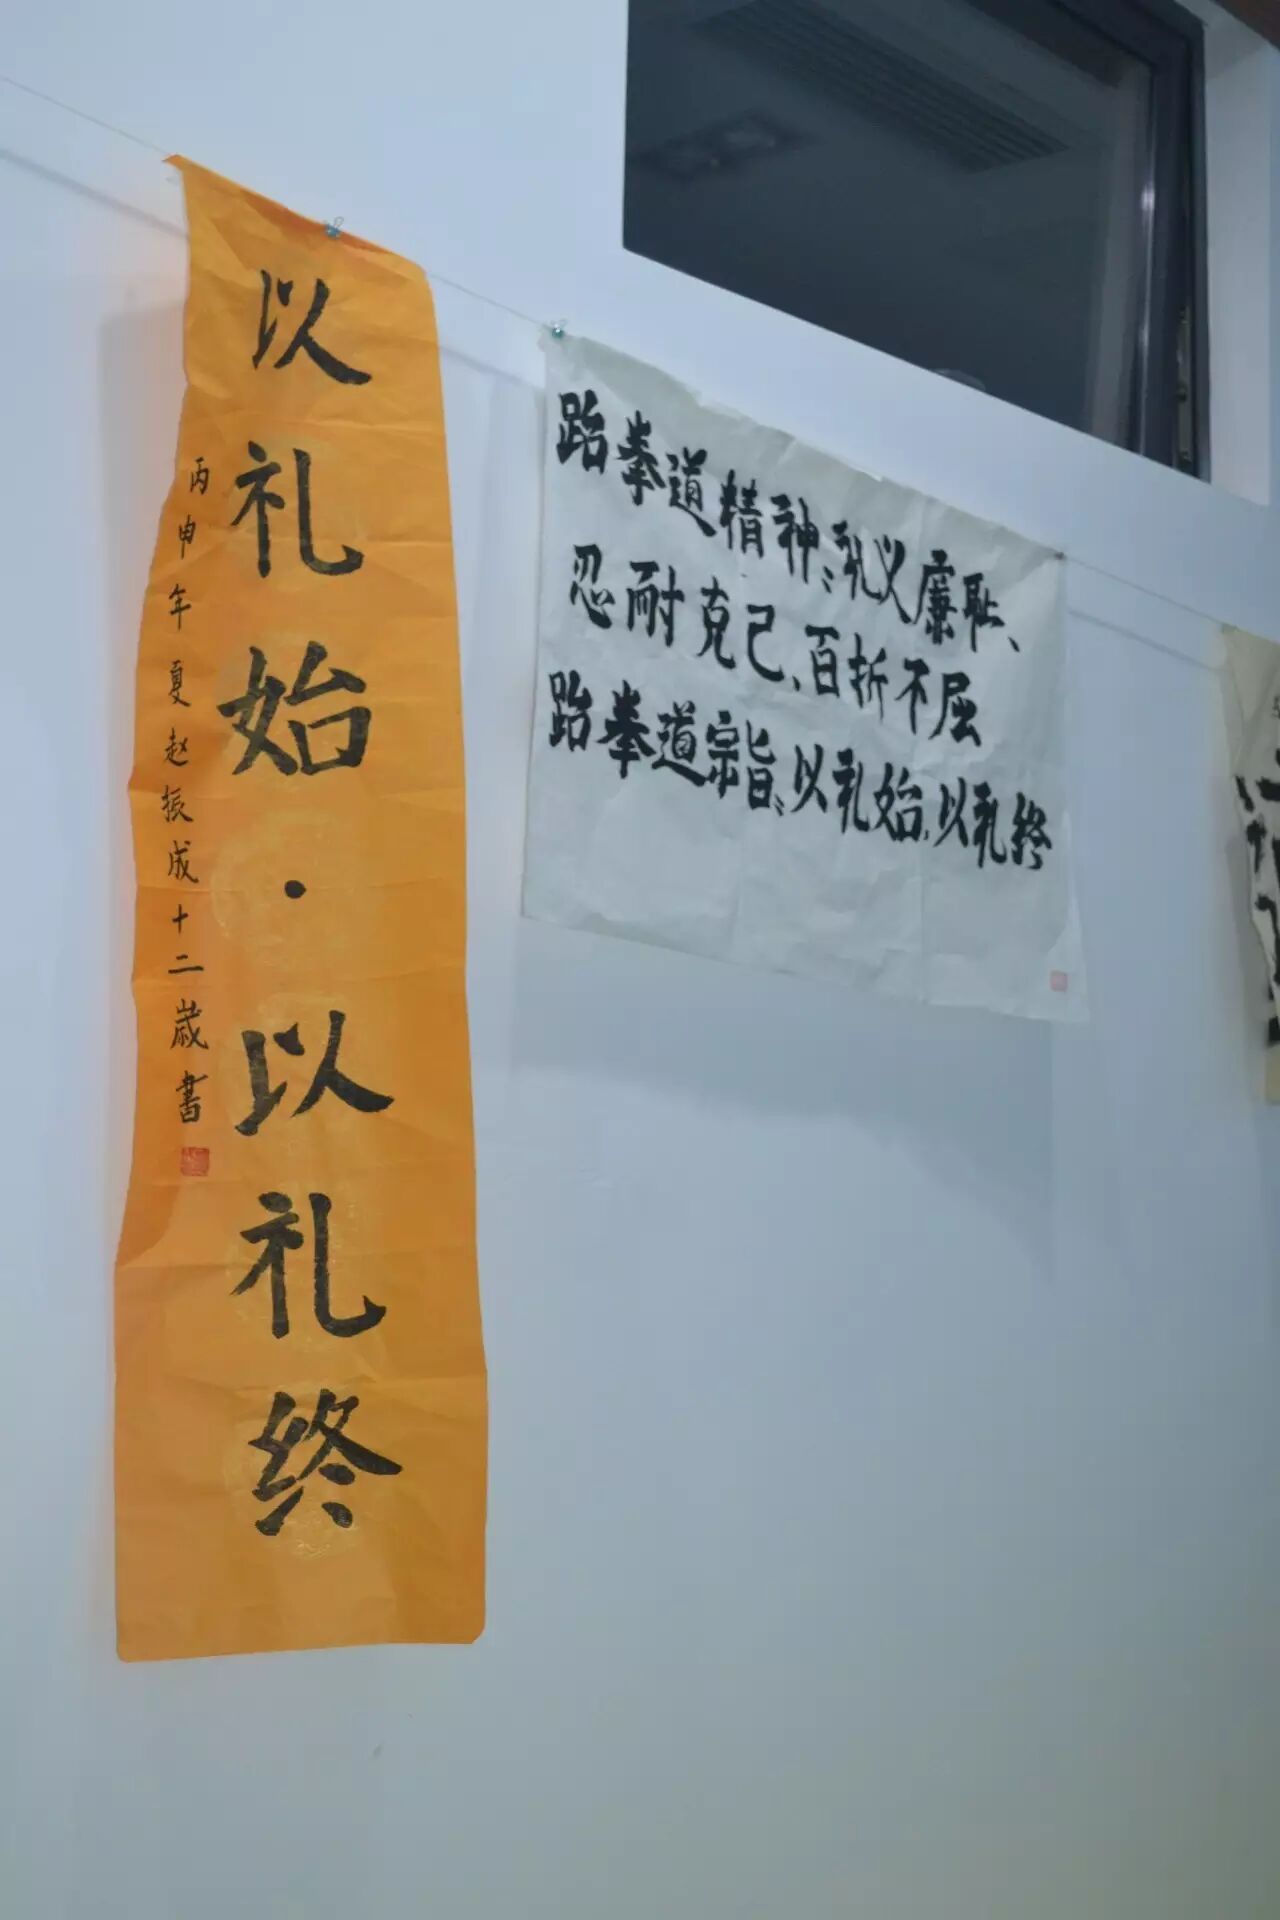 以礼始·以礼终
丙申年夏赵振成十二歳書
跆拳道精神:礼义廉耻、
忍耐克己、百折不屈
跆拳道宗旨:以礼始,以礼终